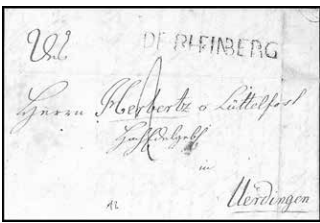 DE RHEINBERG
Herrn Herbertz & Lüttelforst
in
Uerdingen
12